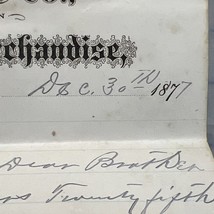 Co.,
IN
erchandise,
Dec. 30TH 1877
Dear Brother
Twenty fifth